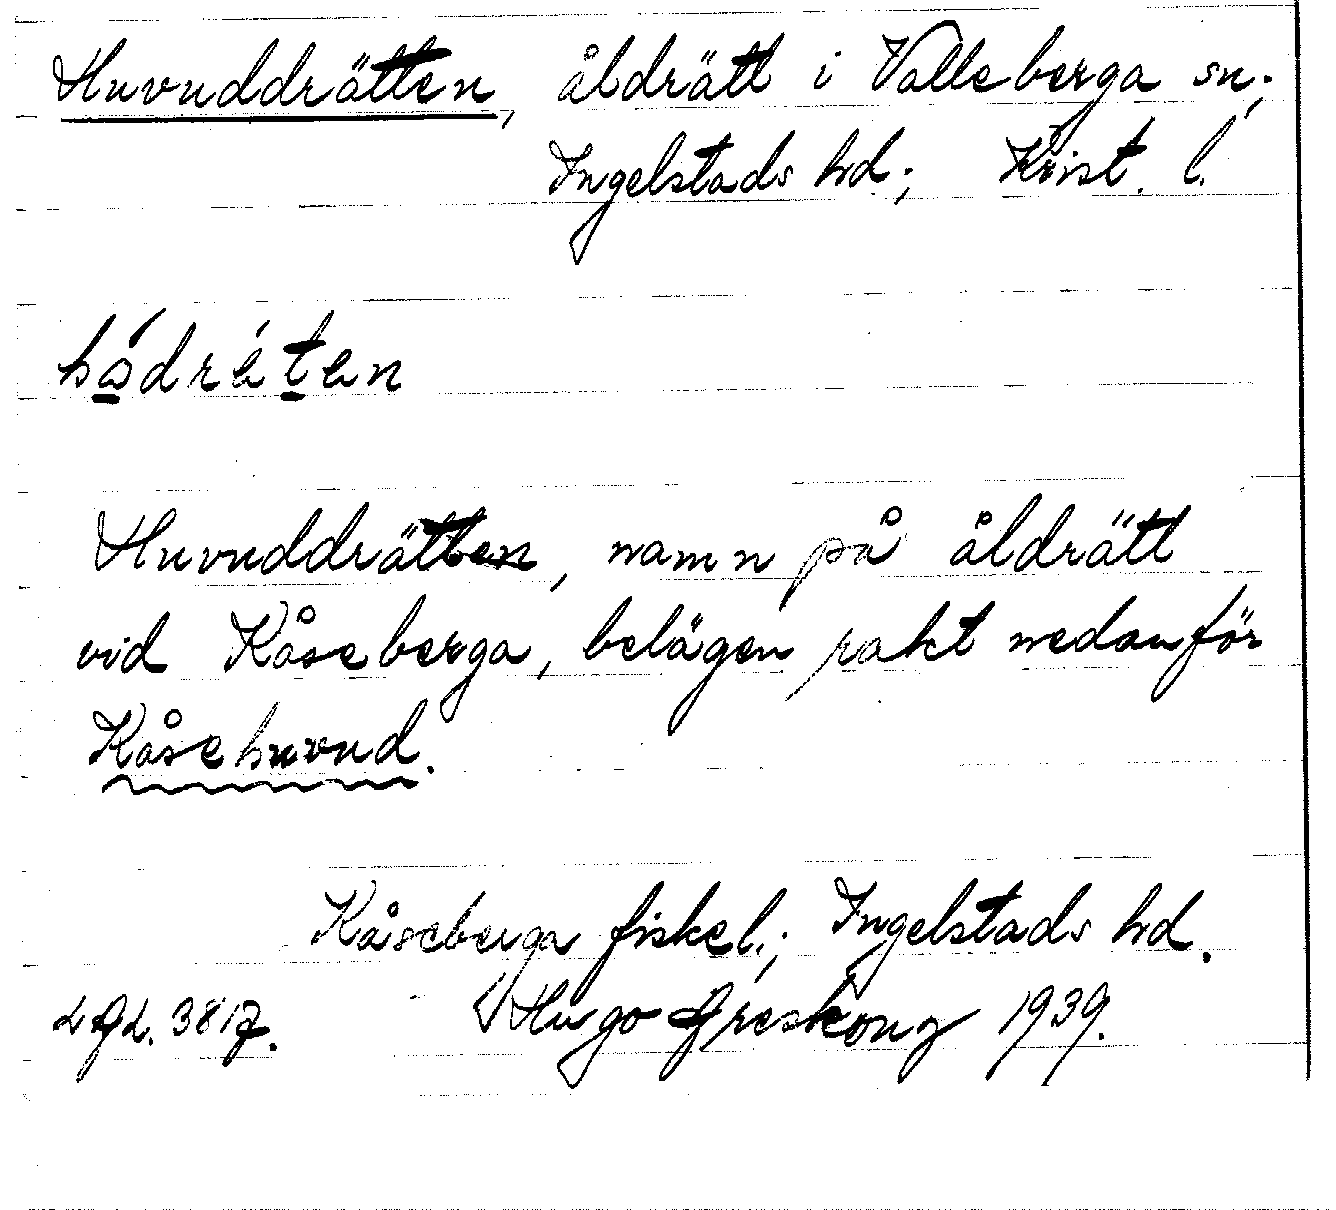 Huvuddrätten, åldrätt i Valleberga sn;
Ingelstads hd; Krist. l.
hådrätan
Huvuddrätten, namn på åldrätt
vid Kåseberga, belägen rakt nedanför
Kåsehuvud.
Kåseberga fiskel.; Ingelstads hd.
3817. Hugo Areskoug 1939.